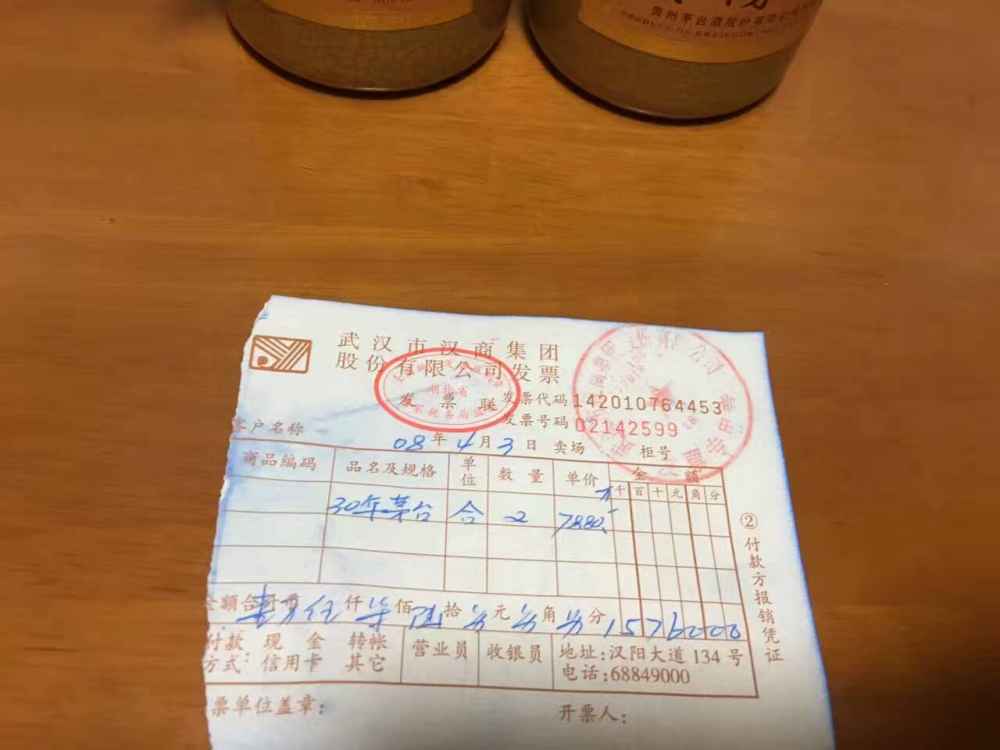 贵州茅台酒股份有限公司
武汉市汉商集团
股份有限公司发票
发票联
发票代码 142010764453
发票号码 02142599
客户名称
08年4月3日 卖场 柜号
商品编码 品名及规格 单位 数量 单价 金额
千百十元角分
30年茅台 合 2 7880
金额合计 壹万伍仟柒佰陆拾 元 角 分 1576000
付款方式: 现金 转帐 信用卡 其它 营业员 收银员 地址:汉阳大道134号
电话:68849000
票单位盖章: 开票人:
②付款方报销凭证